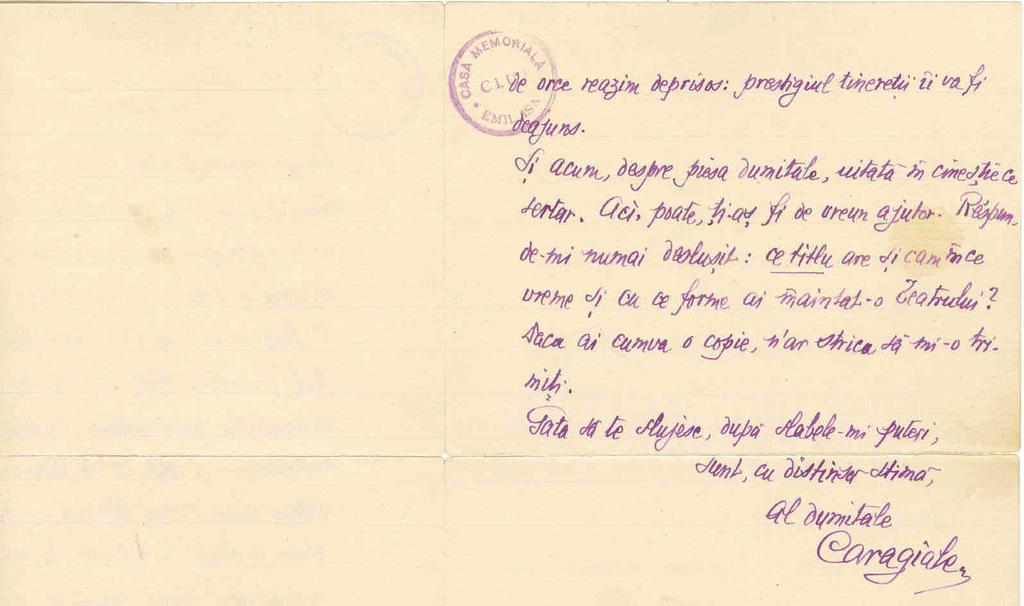 CASA MEMORIALĂ
CLUJ
EMIL ISAC
de orce reazim deprisos: prestigiul tinereții îi va fi
deajuns.
Și acum, despre piesa dumitale, uitată în cineștiece
sertar. Aci, poate, ți-aș fi de vreun ajutor. Răspun-
de-mi numai deslușit: ce titlu are și cam în ce
vreme și cu ce forme ai înaintat-o Teatrului?
Daca ai cumva o copie, n'ar strica să mi-o tri-
miți.
Gata să te slujesc, după slabele-mi puteri,
sunt, cu distinsă stimă,
al dumitale
Caragiale